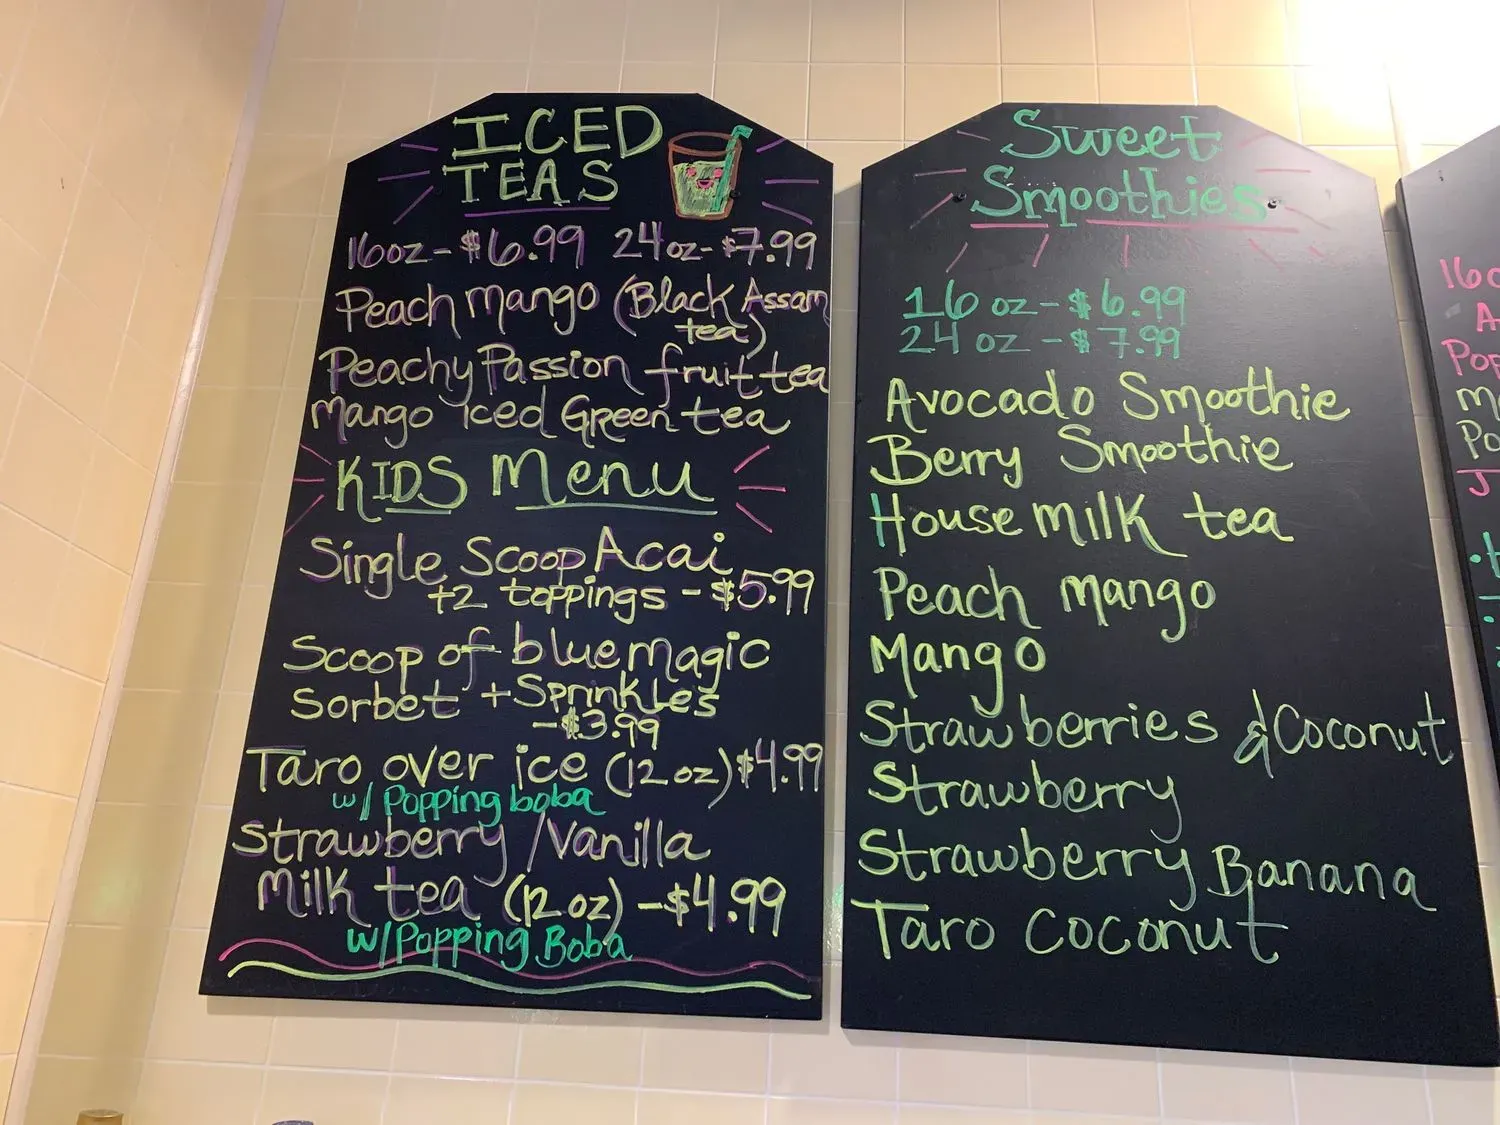 ICED
TEAS
16oz - $6.99 24oz - $7.99
Peach mango (Black Assam
tea)
Peachy Passion fruit tea
Mango iced Green tea
KIDS Menu
Single Scoop Acai
+2 toppings - $5.99
Scoop of blue magic
Sorbet + Sprinkles
- $3.99
Taro over ice (12 oz) $4.99
w/ Popping boba
Strawberry / Vanilla
Milk tea (12 oz) - $4.99
w/ Popping Boba
Sweet
Smoothies
16 oz - $6.99
24 oz - $7.99
Avocado Smoothie
Berry Smoothie
House milk tea
Peach mango
Mango
Strawberries & Coconut
Strawberry
Strawberry Banana
Taro Coconut